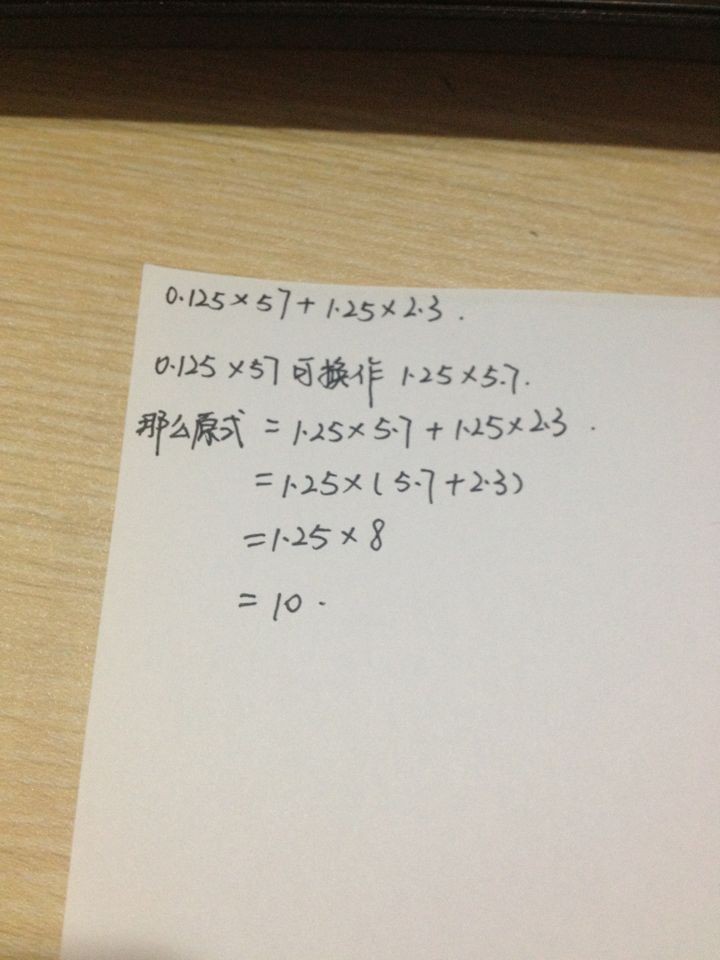 0.125×57+1.25×2.3.
0.125×57可换作 1.25×5.7.
那么原式 =1.25×5.7+1.25×2.3.
=1.25×(5.7+2.3)
=1.25×8
=10.